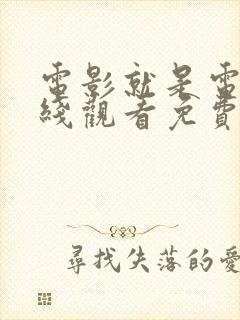 電影就是電
綫觀看免費
尋找失落的愛